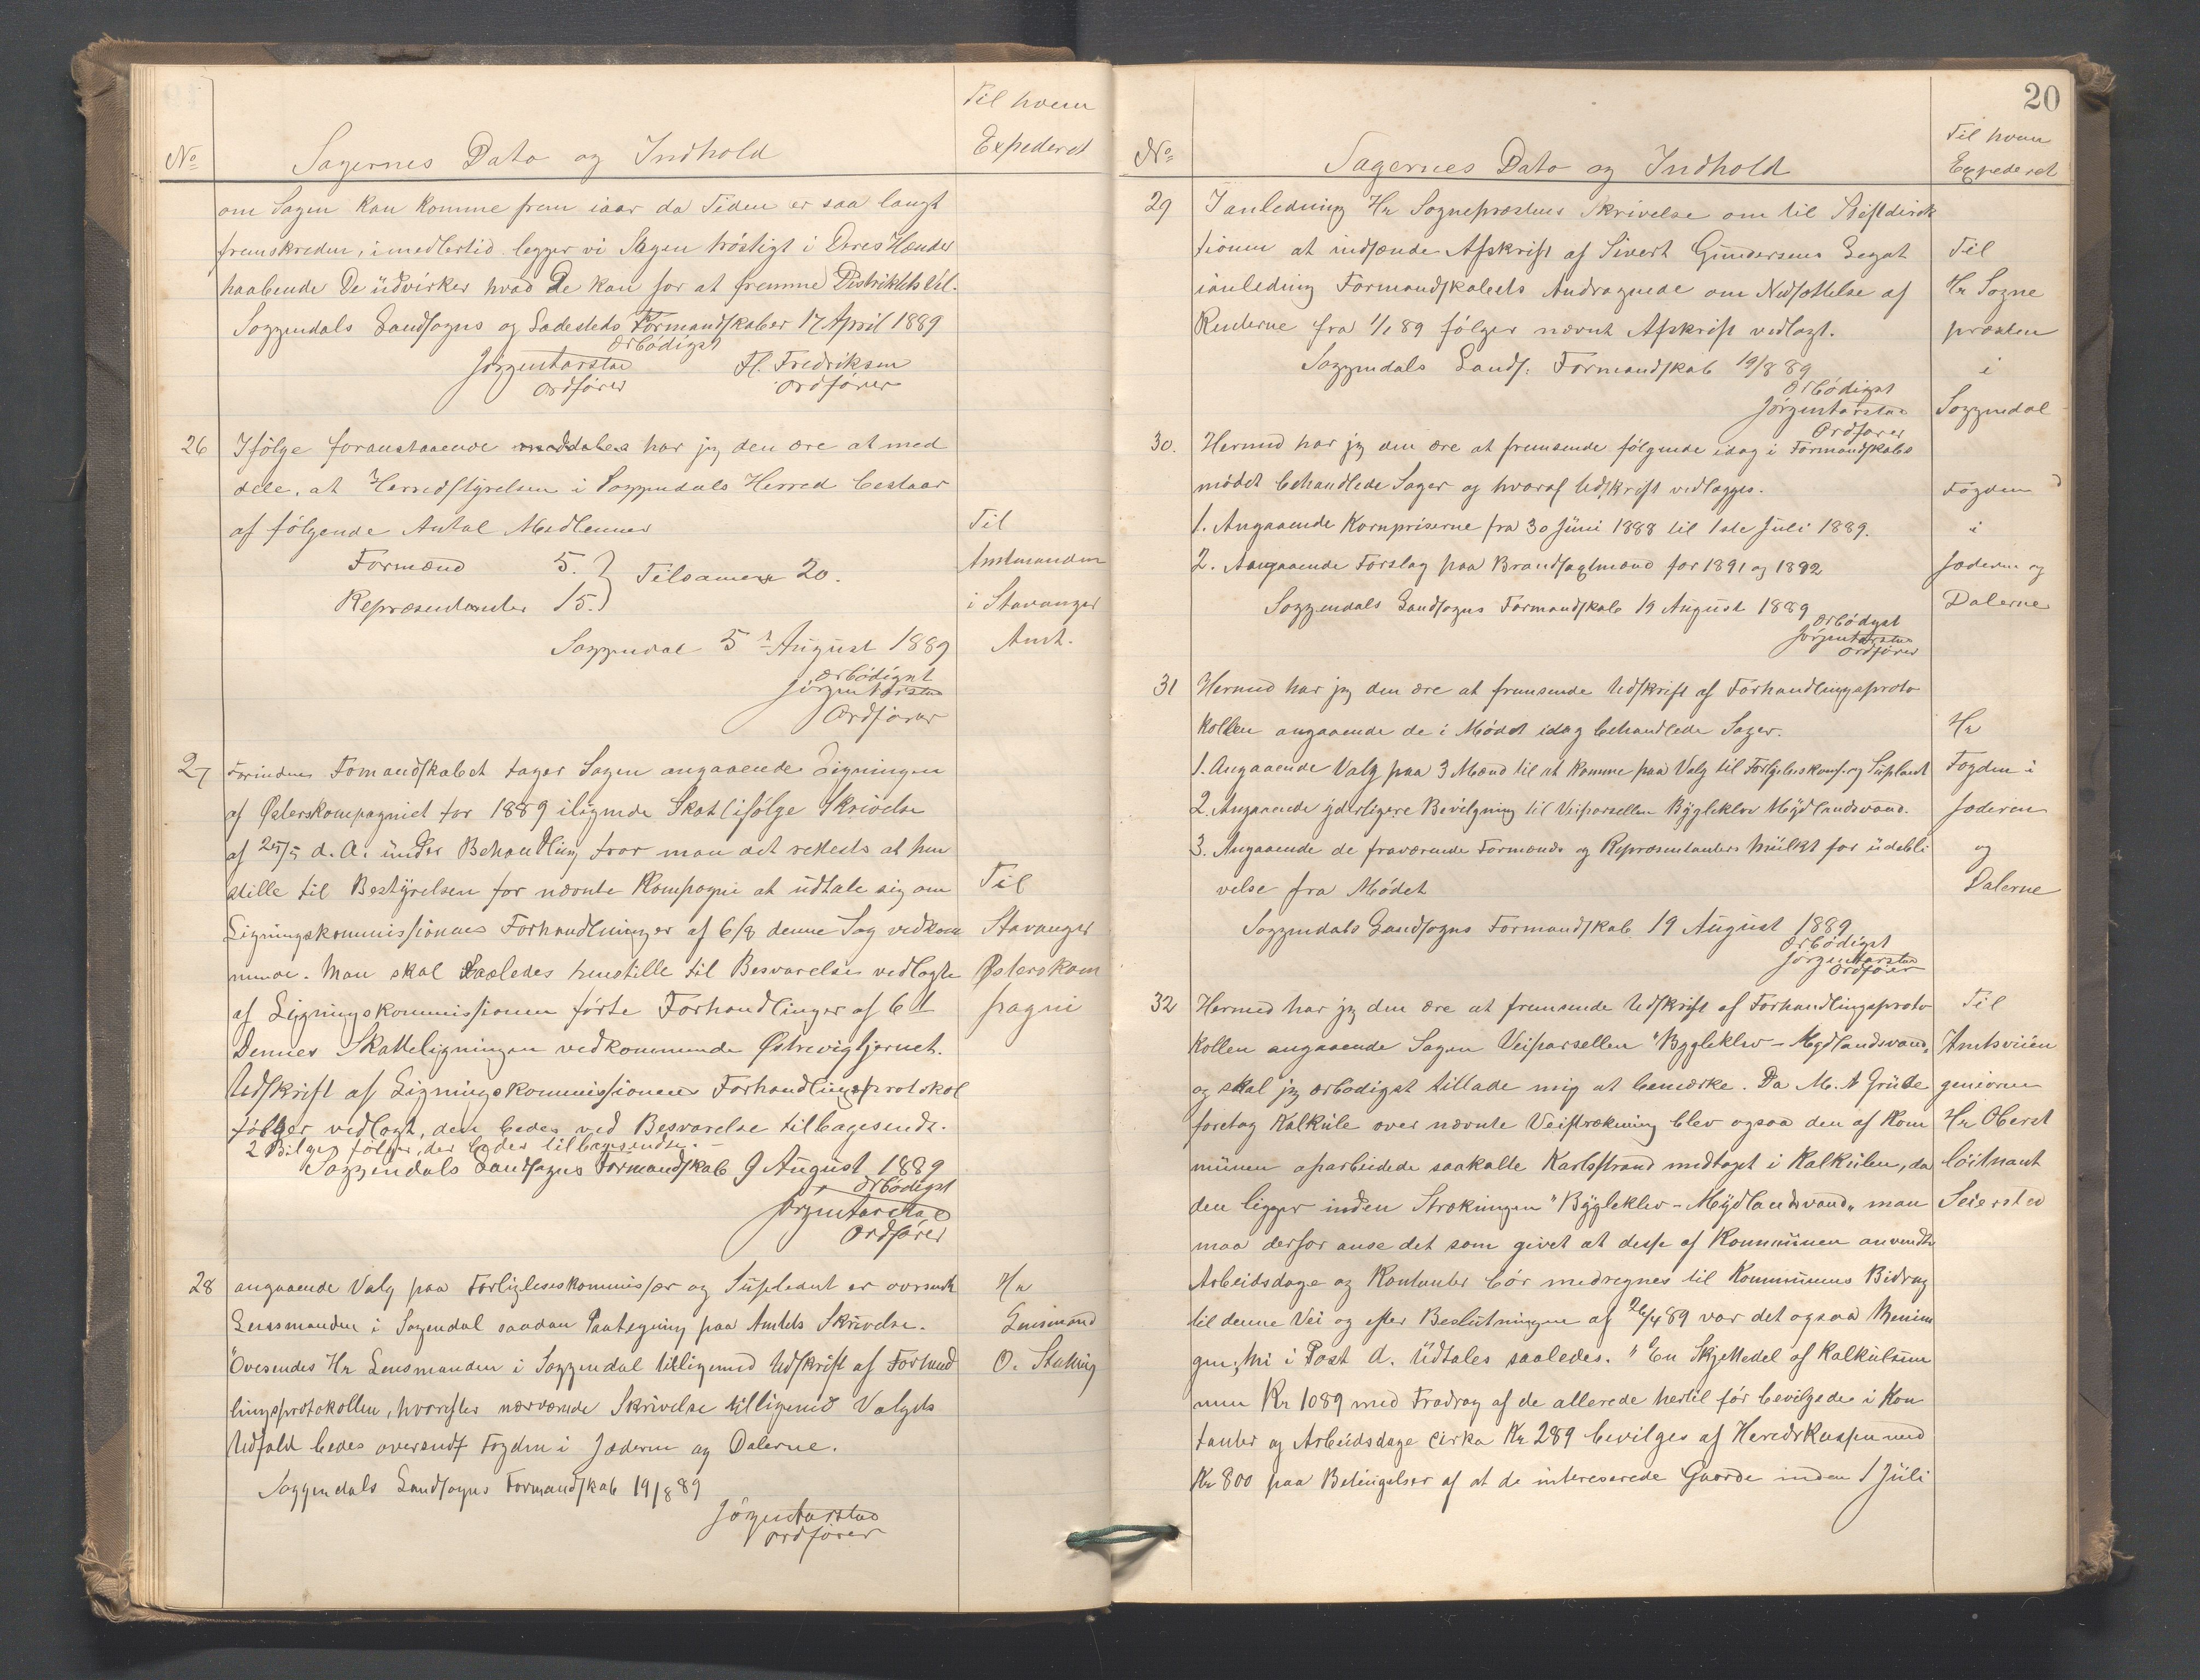 Til hvem
No Sagernes Dato og Indhold Expederet
om Sagen kan komme frem iaar da Tiden er saa langt
fremskreden, imedlertid legger vi Sagen tröstigt i Deres Hænder
haabende De üdvirker hvad De kan for at fremme Distriktets Vel.
Soggendals Landsogns og Ladesteds Formandskaber 17 April 1889
Ærbödigst
Jörgen Aarstad Fl. Fredriksen
Ordförer Ordförer
26 Ifölge foranstaaende meddeles har jeg den ære at med
dele, at Herredstyrelsen i Soggendals Herred bestaar
af fölgende Antal Medlemmer Til
Formænd 5. Tilsamen 20. Amtmanden
Repræsentanter 15. i Stavanger
Soggendal 5 August 1889 Amt.
ærbödigst
Jörgen Aarstad
Ordförer
27 Forinden Fomandskabet tager Sagen angaaende Ligningen
af Østerskompagniet for 1889 ilignede Skat ifölge Skrivelse
af 25/5 d. A. ünder Behandling tror man det rettests at hen
stille til Bestyrelsen for nævnte Kompagni at üdtale sig om Til
Ligningskommissionens Forhandlinger af 6/8 denne Sag vedkom Stavanger
mende. Man skal saaledes henstille til Besvarelse vedlagte Østerskom
af Ligningskommissionen förte Forhandlinger af 6 t pagni
Dennes Skatteligningen vedkommende Østrevigtjernet.
Udskrift af Ligningskommissionens Forhandlingsprotokol
fölger vedlagt, den bedes ved Besvarelse tilbagesendt.
2 Bilge fölger, der bedes tilbagesendte.
Soggendals Landsogns Formandskab 9 August 1889
Ærbödigst
Jörgen Aarstad
Ordförer
28 angaaende Valg paa Forligleseskommissær og Supleant er oversendt Hr
Lensmanden i Sogendal saadan Paategning paa Amtets Skrivelse. Lensmand
"Ovesendes Hr Lensmanden i Soggendal tilligemed Udskrift af Forhand O. Stabing
lingsprotokollen, hvorefter nærværende Skrivelse tilligemed Valgets
Udfald bedes oversendt Fogden i Jæderen og Dalerne.
Soggendals Landsogns Formandskab 19/8 89
Jörgen Aarstad
Ordförer
20
Til hvem
No Sagernes Dato og Indhold Expederet
29 I anledning Hr Sognepræstens Skrivelse om til Stiftdirek
tionen at indsænde Afskrift af Sivert Gundersens Legat Til
ianleding Formandskabets Andragnede om Nedsættelse af Hr Sogne
Renterne fra 1/1 89 fölger nævnt Afskrift vedlagt. præsten
Soggendals Lands. Formandskab 19/8 89 i
Ærbödigst
Jörgen Aarstad Soggendal
Ordförer
30. Hermed har jeg den ære at fremsende fölgende idag i Formandskabs
mödet behandlede Sager og hvoraf Udskrift vedlagges. Fogden
1. Angaaende Kornpriserne fra 30 Jüni 1888 til 1ste Juli 1889. i
2. Angaaende Forslag paa Brandsagtmænd for 1891 og 1892 Jæderen og
Soggendals Landsogns Formandskab 19 August 1889 Dalerne
Ærbödigst
Jörgen Aarstad
Ordförer
31 Hermed har jeg den ære at fremsende Udskrift af Forhandlingsproto
kollen angaaende de i Mödet idag behandlede Sager. Hr
1. Angaaende Valg paa 3 Mænd til at komme paa Valg til Forligelseskoms. og Supleant Fogden i
2. Angaaende yderligere Bevilgning til Veiparsellen Bÿgleklev Mÿdlandsvand. Jæderen
3. Angaaende de fraværende Formænds og Repræsentanters Mülkt for üdebli og
velse fra Mödet Dalerne
Soggendals Landsogns Formandskab 19 August 1889
Ærbödigst
Jörgen Aarstad
Ordförer
32 Hermed har jeg den ære at fremsende Udskrift af Forhandlingsproto Til
kollen angaaende Sagen Veiparsellen "Bygleklev – Mydlandsvand„ Amtsveiin
og skal jeg ærbodigst tillade mig at bemærke. Da M. A Grüde geniøren
foretog Kalküle over nævnte Veistrækning blev ogsaa den af Kom Hr Oberst
münen oparbeidede saakalte Karlsstrand medtaget i Kalkülen, da löitnant
den ligger inden Strækningen "Bÿgleklev – Mÿdlandsvand„ man Seiersted
maa derfor anse det som givet at disse af Kommünen anvendte
Arbeidsdage og Kontanter bör medregnes til Kommünens Bidrag
til denne Vei og efter Beslütningen af 26/4 89 var det ogsaa Menin
gen, thi i Post A. Üdtales saaledes. "En Skjettedel af Kalkülsum
men Kr 1089 med Fradrag af de allerede hertil för bevilgede i Kon
tanter og Arbeidsdage cirka Kr 289 bevilges af Heredskassen med
Kr 800 paa Betingelser af at de interesserede Gaarde inden 1 Jüli